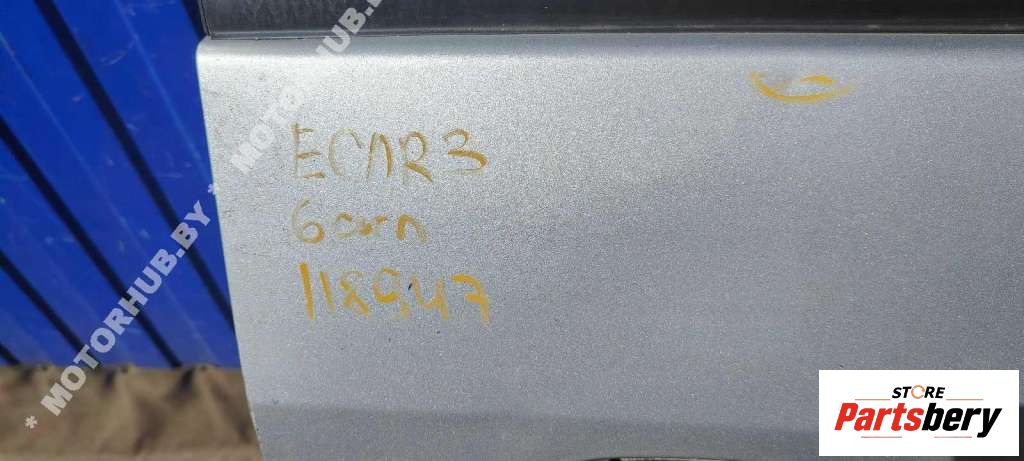 * MOTORHUB.BY * MOTORHUB.BY *
ECAR3
118947
STORE
Partsbery